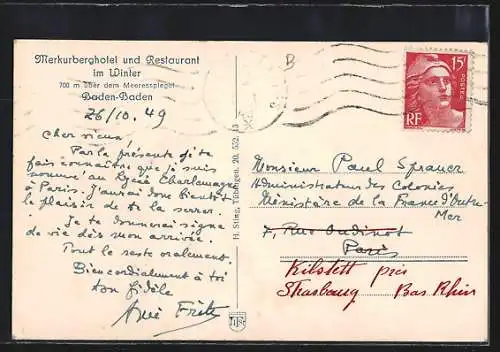 Merkurberghotel und Restaurant
im Winter
700 m über dem Meeresspiegel
Baden-Baden
26/10.49
Cher vieux!
Par la présente je te
fais connaître que je suis
nommé au Lycée Charlemagne
à Paris. J'aurai donc bientôt
le plaisir de te la serrer.
Je te donnerai signe
de vie dès mon arrivée.
Tout le reste oralement.
Bien cordialement à toi
ton fidèle
Fritz
H. Sting, Tübingen, 20, 652,
15F
POSTES
RF
Monsieur Paul
Administrateur des Colonies
Ministère de la France d'Outre-
Mer
7, Rue Oudinot
Paris
Kilstett près
Strasbourg Bas Rhin